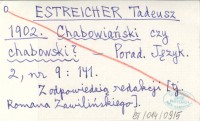 ESTREICHER Tadeusz
1902. Chabowiański czy
chabowski? — Porad. Język.
2, nr 9 : 141.
Z odpowiedzią redakcji [tj.
Romana Zawilińskiego].